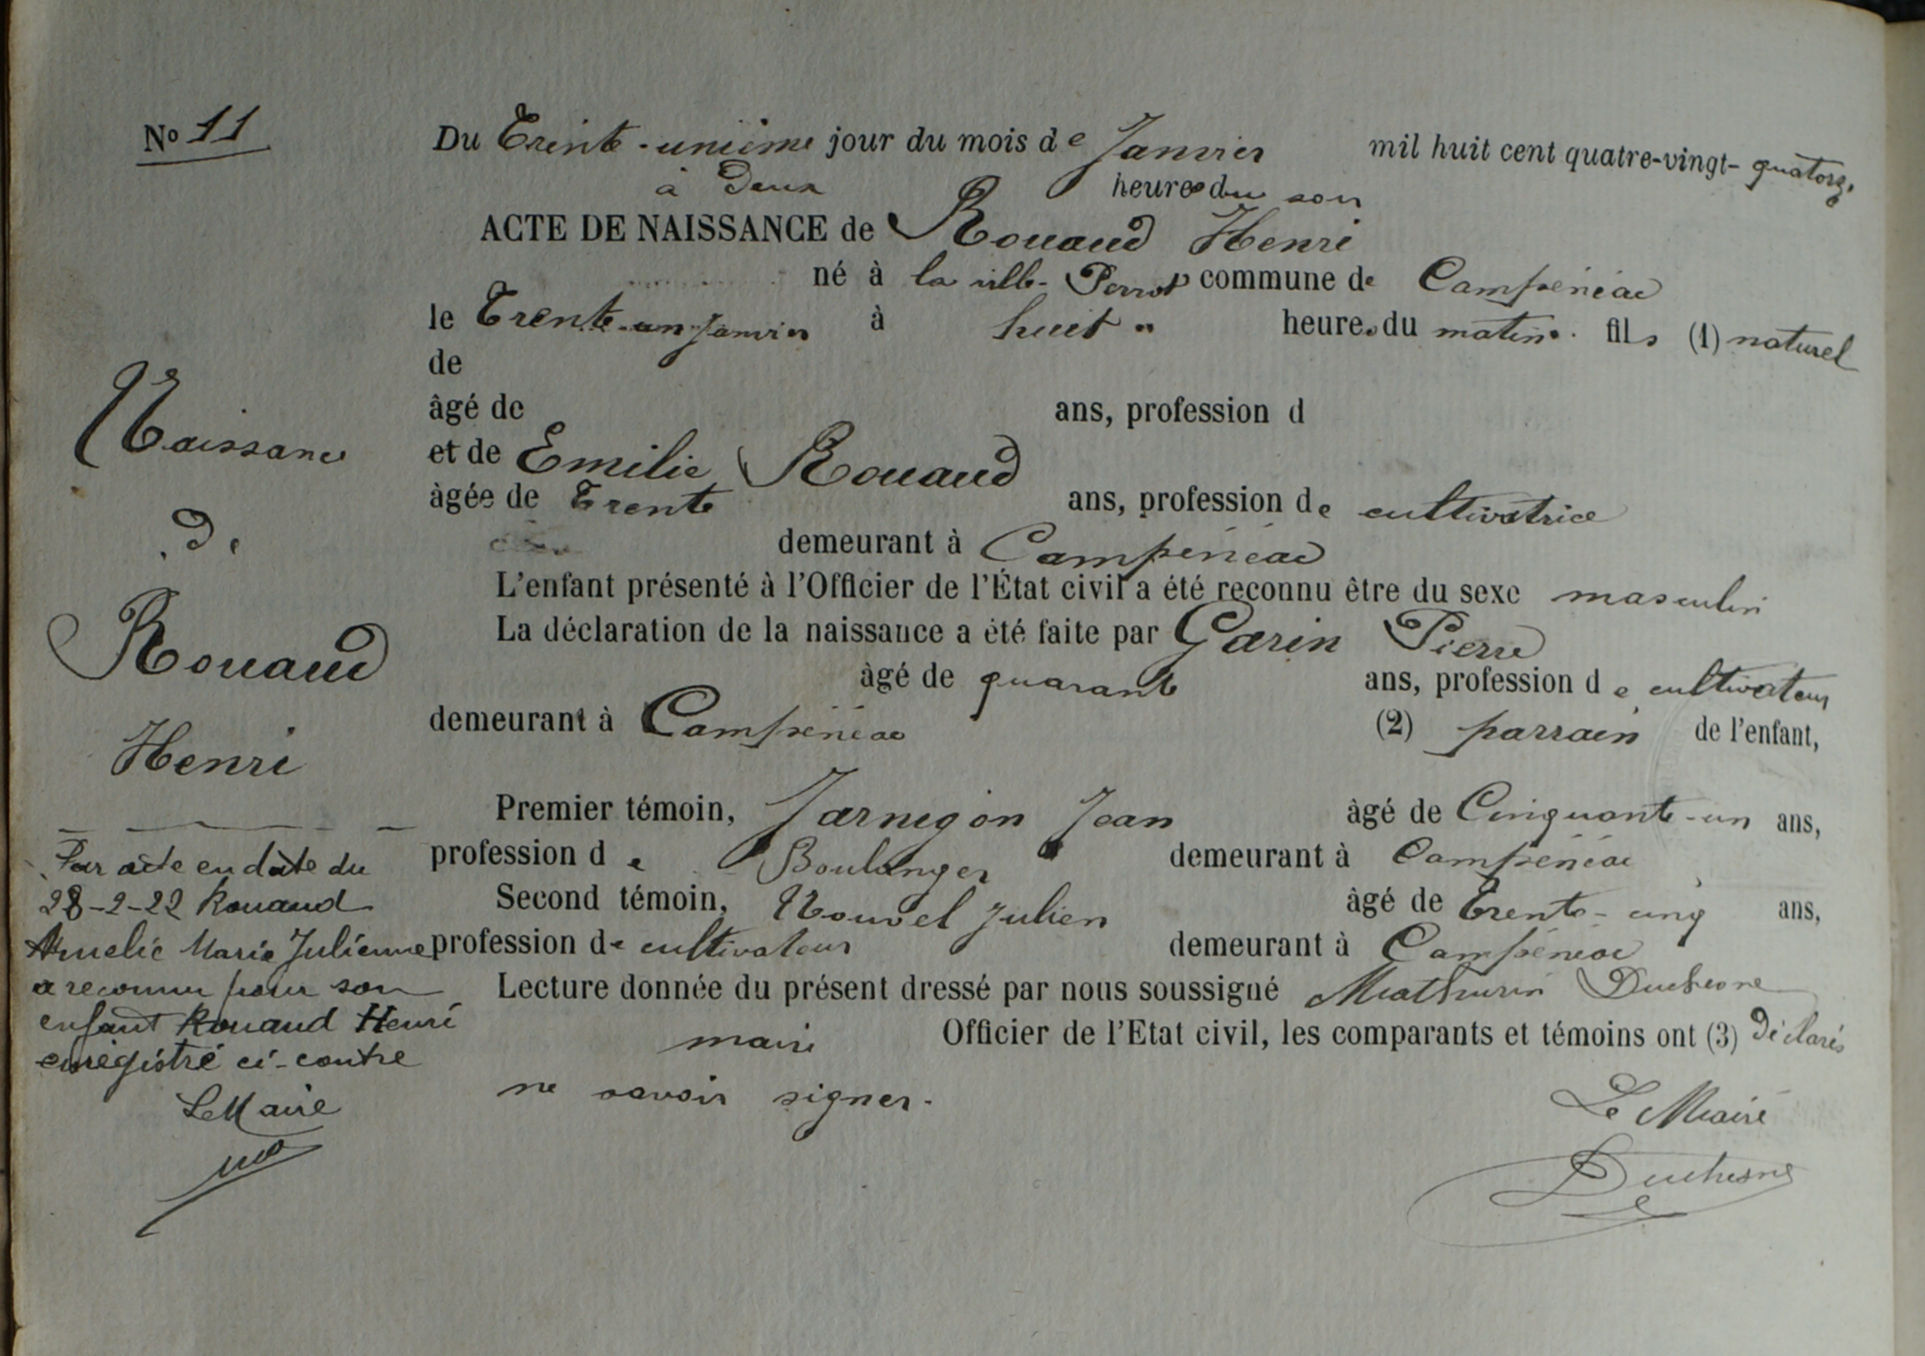 No 11
Du Trente-unième jour du mois de Janvier mil huit cent quatre-vingt-quatorze
à Deux heures du soir
ACTE DE NAISSANCE de Rouaud Henri
né à la ville Perrot commune de Campénéac
le Trente-un Janvier à huit heures du matin fils (1) naturel
de
âgé de ans, profession d
et de Emilie Rouaud
âgée de Trente ans, profession de cultivatrice
demeurant à Campénéac
L'enfant présenté à l'Officier de l'État civil a été reconnu être du sexe masculin
La déclaration de la naissance a été faite par Garin Pierre
âgé de quarante ans, profession de cultivateur
demeurant à Campénéac (2) parrain de l'enfant,
Premier témoin, Jarnigon Jean âgé de Cinquante-un ans,
profession de Boulanger demeurant à Campénéac
Second témoin, Nouvel Julien âgé de Trente-cinq ans,
profession de cultivateur demeurant à Campénéac
Lecture donnée du présent dressé par nous soussigné Mathurin Duchesne
maire Officier de l'Etat civil, les comparants et témoins ont (3) déclarés
ne savoir signer.
Le Maire
Duchesne
Naissance
de
Rouaud
Henri
Par acte en date du
28-2-22 Rouaud
Amelie Marie Julienne
a reconnu pour son
enfant Rouaud Henri
enregistré ci-contre
Le Maire